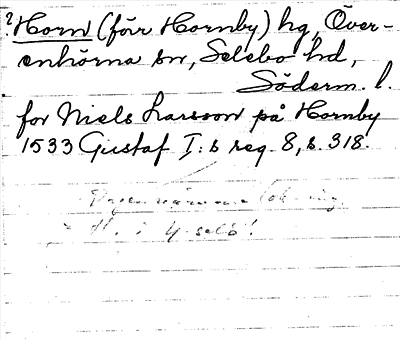 ? Horn (förr Hornby) hg, Över-
enhörna sn, Selebo hd,
Söderm. l.
for Niels Larsson på Hornby
1533 Gustaf I:s reg. 8, s. 318.
H. i Y-selö!